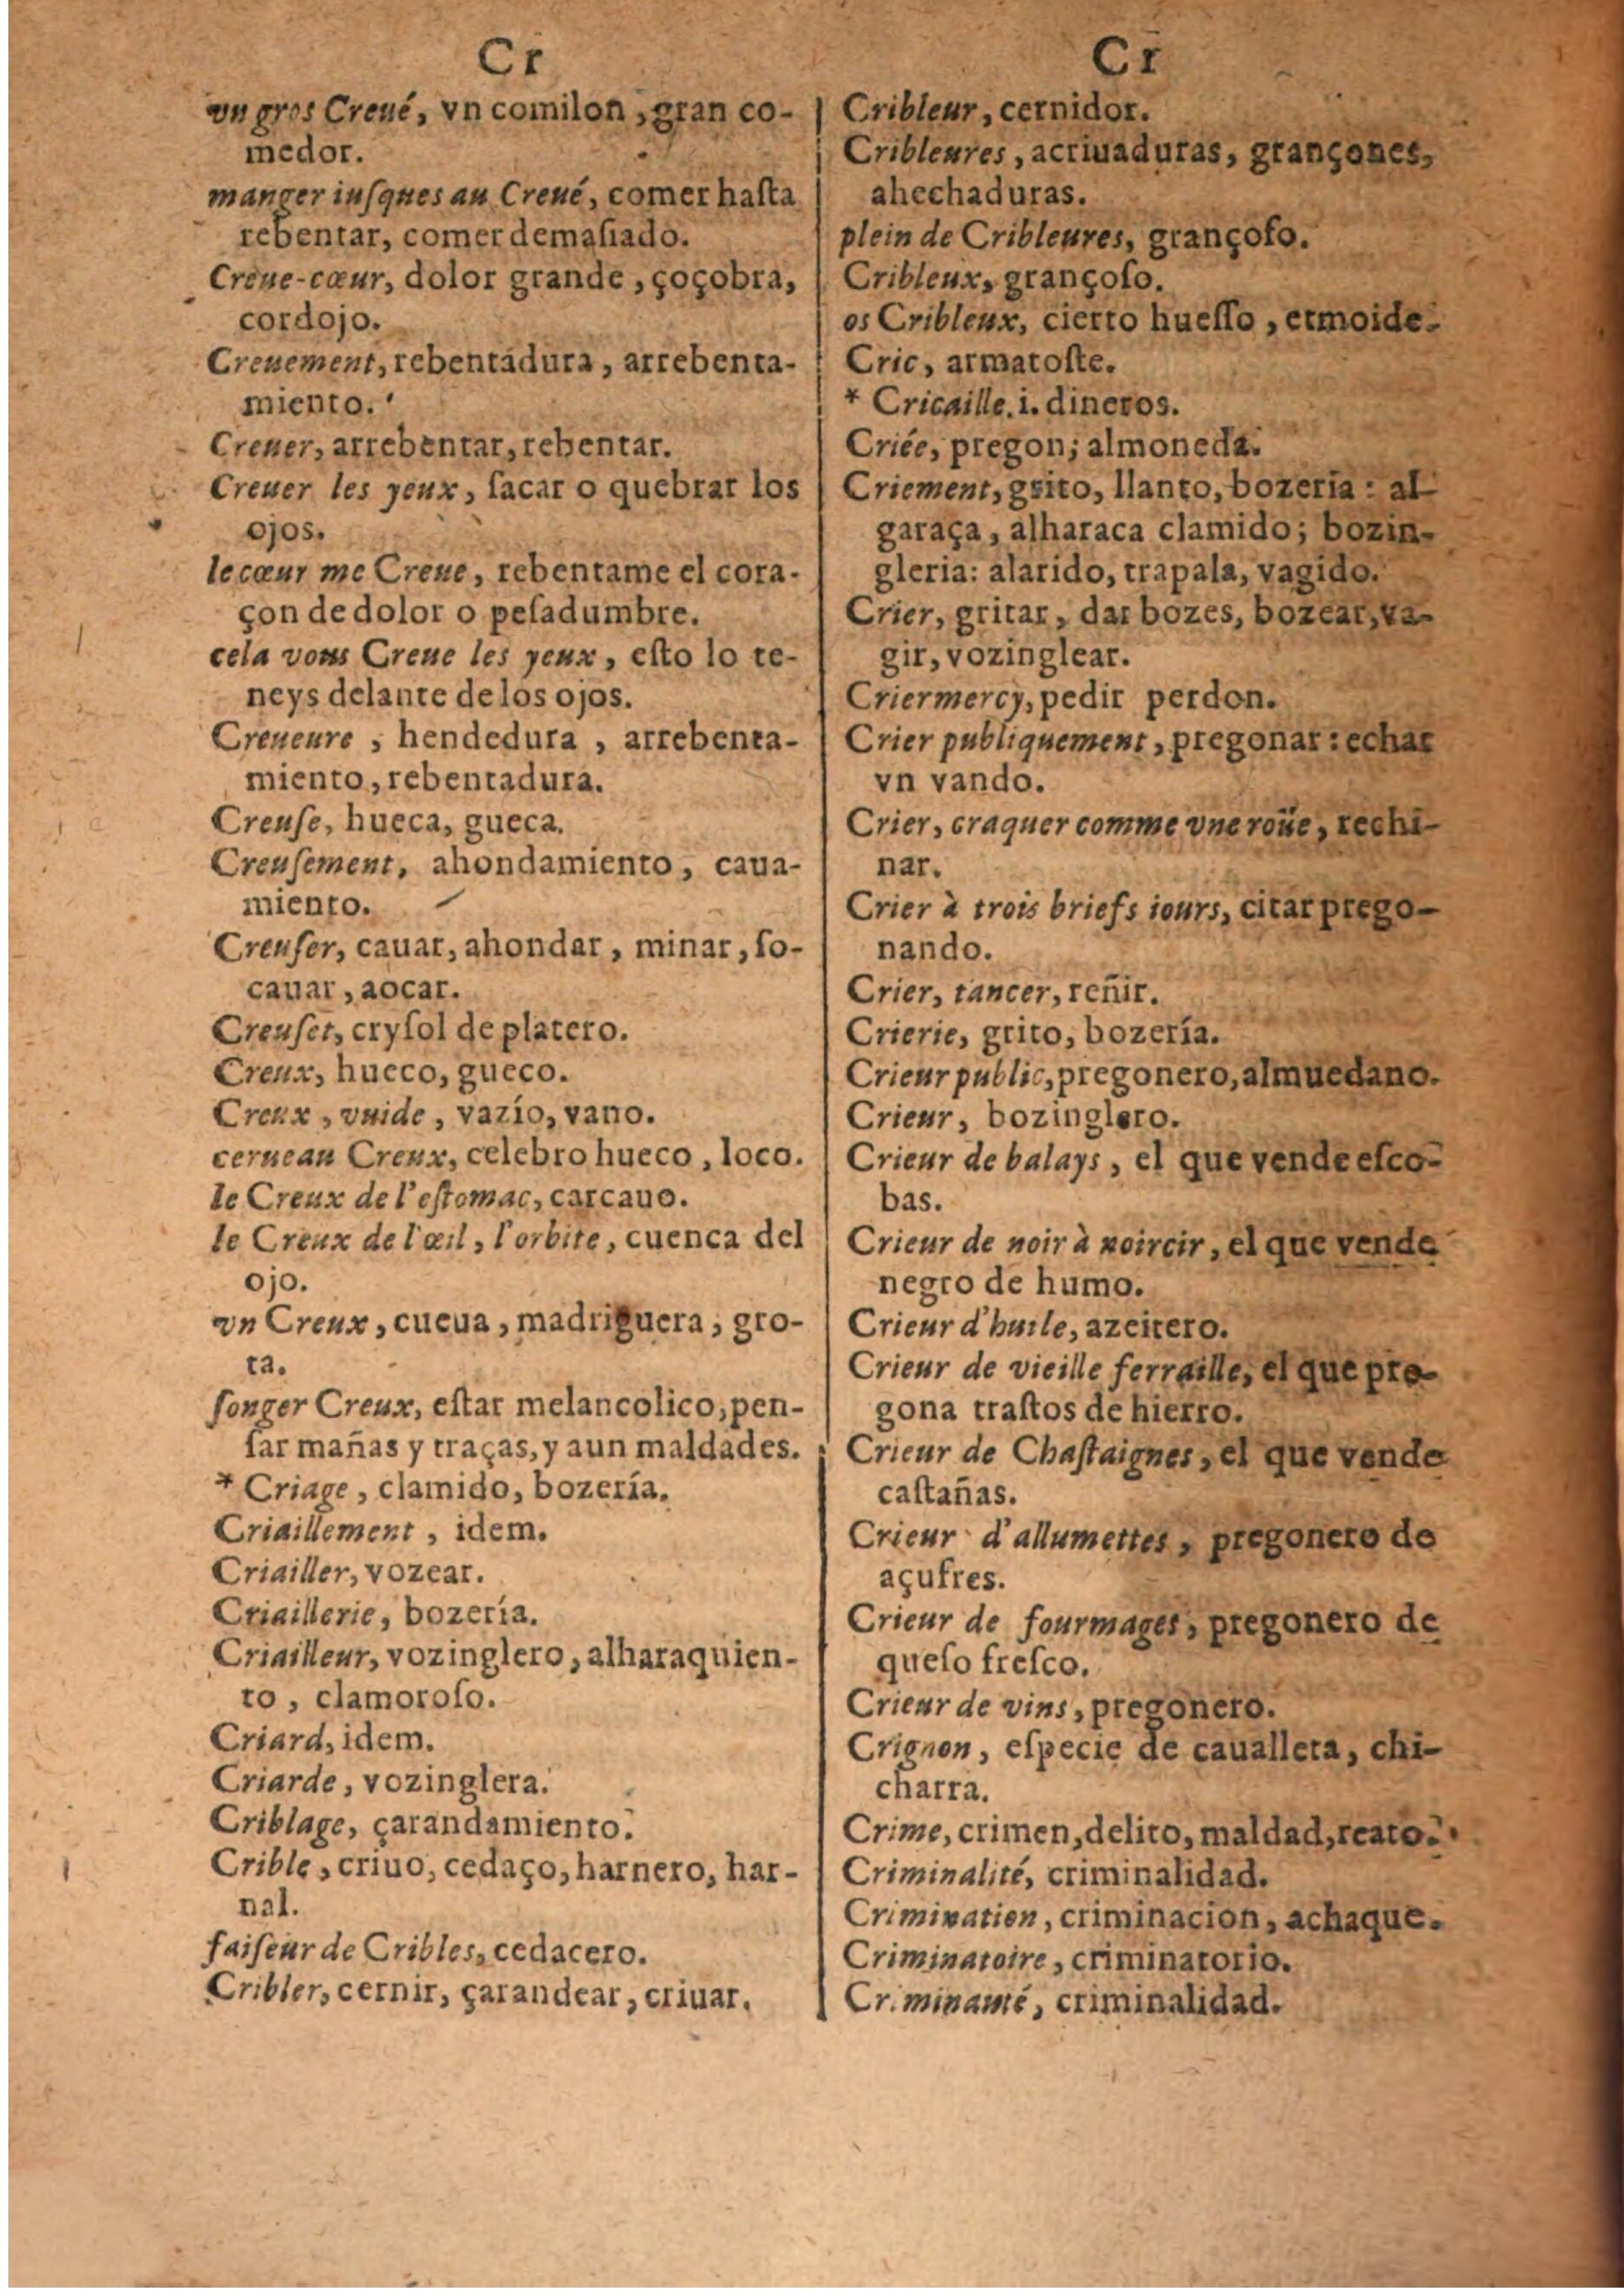 Cr
vn gros Creué, vn comilon, gran co-
medor.
manger iuſques au Creué, comer haſta
rebentar, comer demaſiado.
Creue-cœur, dolor grande, çoçobra,
cordojo.
Creuement, rebentadura, arrebenta-
miento.
Creuer, arrebentar, rebentar.
Creuer les yeux, ſacar o quebrar los
ojos.
le cœur me Creue, rebentame el cora-
çon de dolor o peſadumbre.
cela vous Creue les yeux, eſto lo te-
neys delante de los ojos.
Creueure, hendedura, arrebenta-
miento, rebentadura.
Creuſe, hueca, gueca.
Creuſement, ahondamiento, caua-
miento.
Creuſer, cauar, ahondar, minar, ſo-
cauar, aocar.
Creuſet, cryſol de platero.
Creux, hueco, gueco.
Creux, vuide, vazío, vano.
cerueau Creux, celebro hueco, loco.
le Creux de l'eſtomac, carcauo.
le Creux de l'œil, l'orbite, cuenca del
ojo.
vn Creux, cueua, madriguera, gro-
ta.
ſonger Creux, eſtar melancolico, pen-
ſar mañas y traças, y aun maldades.
* Criage, clamido, bozería.
Criaillement, idem.
Criailler, vozear.
Criaillerie, bozería.
Criailleur, vozinglero, alharaquien-
to, clamoroſo.
Criard, idem.
Criarde, vozinglera.
Criblage, çarandamiento.
Crible, criuo, cedaço, harnero, har-
nal.
faiſeur de Cribles, cedacero.
Cribler, cernir, çarandear, criuar.
Cr
Cribleur, cernidor.
Cribleures, acriuaduras, grançones,
ahechaduras.
plein de Cribleures, grançoſo.
Cribleux, grançoſo.
os Cribleux, cierto hueſſo, etmoide.
Cric, armatoſte.
* Cricaille. i. dineros.
Criée, pregon; almoneda.
Criement, grito, llanto, bozería: al-
garaça, alharaca clamido; bozin-
gleria: alarido, trapala, vagido.
Crier, gritar, dar bozes, bozear, va-
gir, vozinglear.
Crier mercy, pedir perdon.
Crier publiquement, pregonar: echar
vn vando.
Crier, craquer comme vne roüe, rechi-
nar.
Crier à trois briefs iours, citar prego-
nando.
Crier, tancer, reñir.
Crierie, grito, bozería.
Crieur public, pregonero, almuedano.
Crieur, bozinglero.
Crieur de balays, el que vende eſco-
bas.
Crieur de noir à noircir, el que vende
negro de humo.
Crieur d'huile, azeitero.
Crieur de vieille ferraille, el que pre-
gona traſtos de hierro.
Crieur de Chaſtaignes, el que vende
caſtañas.
Crieur d'allumettes, pregonero de
açufres.
Crieur de fourmages, pregonero de
queſo freſco.
Crieur de vins, pregonero.
Crignon, eſpecie de caualleta, chi-
charra.
Crime, crimen, delito, maldad, reato.
Criminalité, criminalidad.
Crimination, criminacion, achaque.
Criminatoire, criminatorio.
Criminauté, criminalidad.